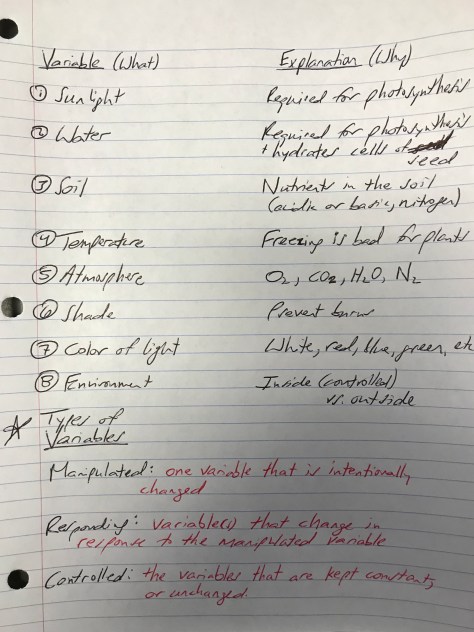 Variable (What) Explanation (Why)
① Sunlight Required for photosynthesis
② Water Required for photosynthesis
+ hydrates cells of seed
③ Soil Nutrients in the soil
(acidic or basic, nitrogen)
④ Temperature Freezing is bad for plants
⑤ Atmosphere O2, CO2, H2O, N2
⑥ Shade Prevent burns
⑦ Color of light White, red, blue, green, etc
⑧ Environment Inside (controlled)
vs. outside
☆ Types of
Variables
Manipulated: one variable that is intentionally
changed
Responding: variable(s) that change in
response to the manipulated variable
Controlled: the variables that are kept constant,
or unchanged.